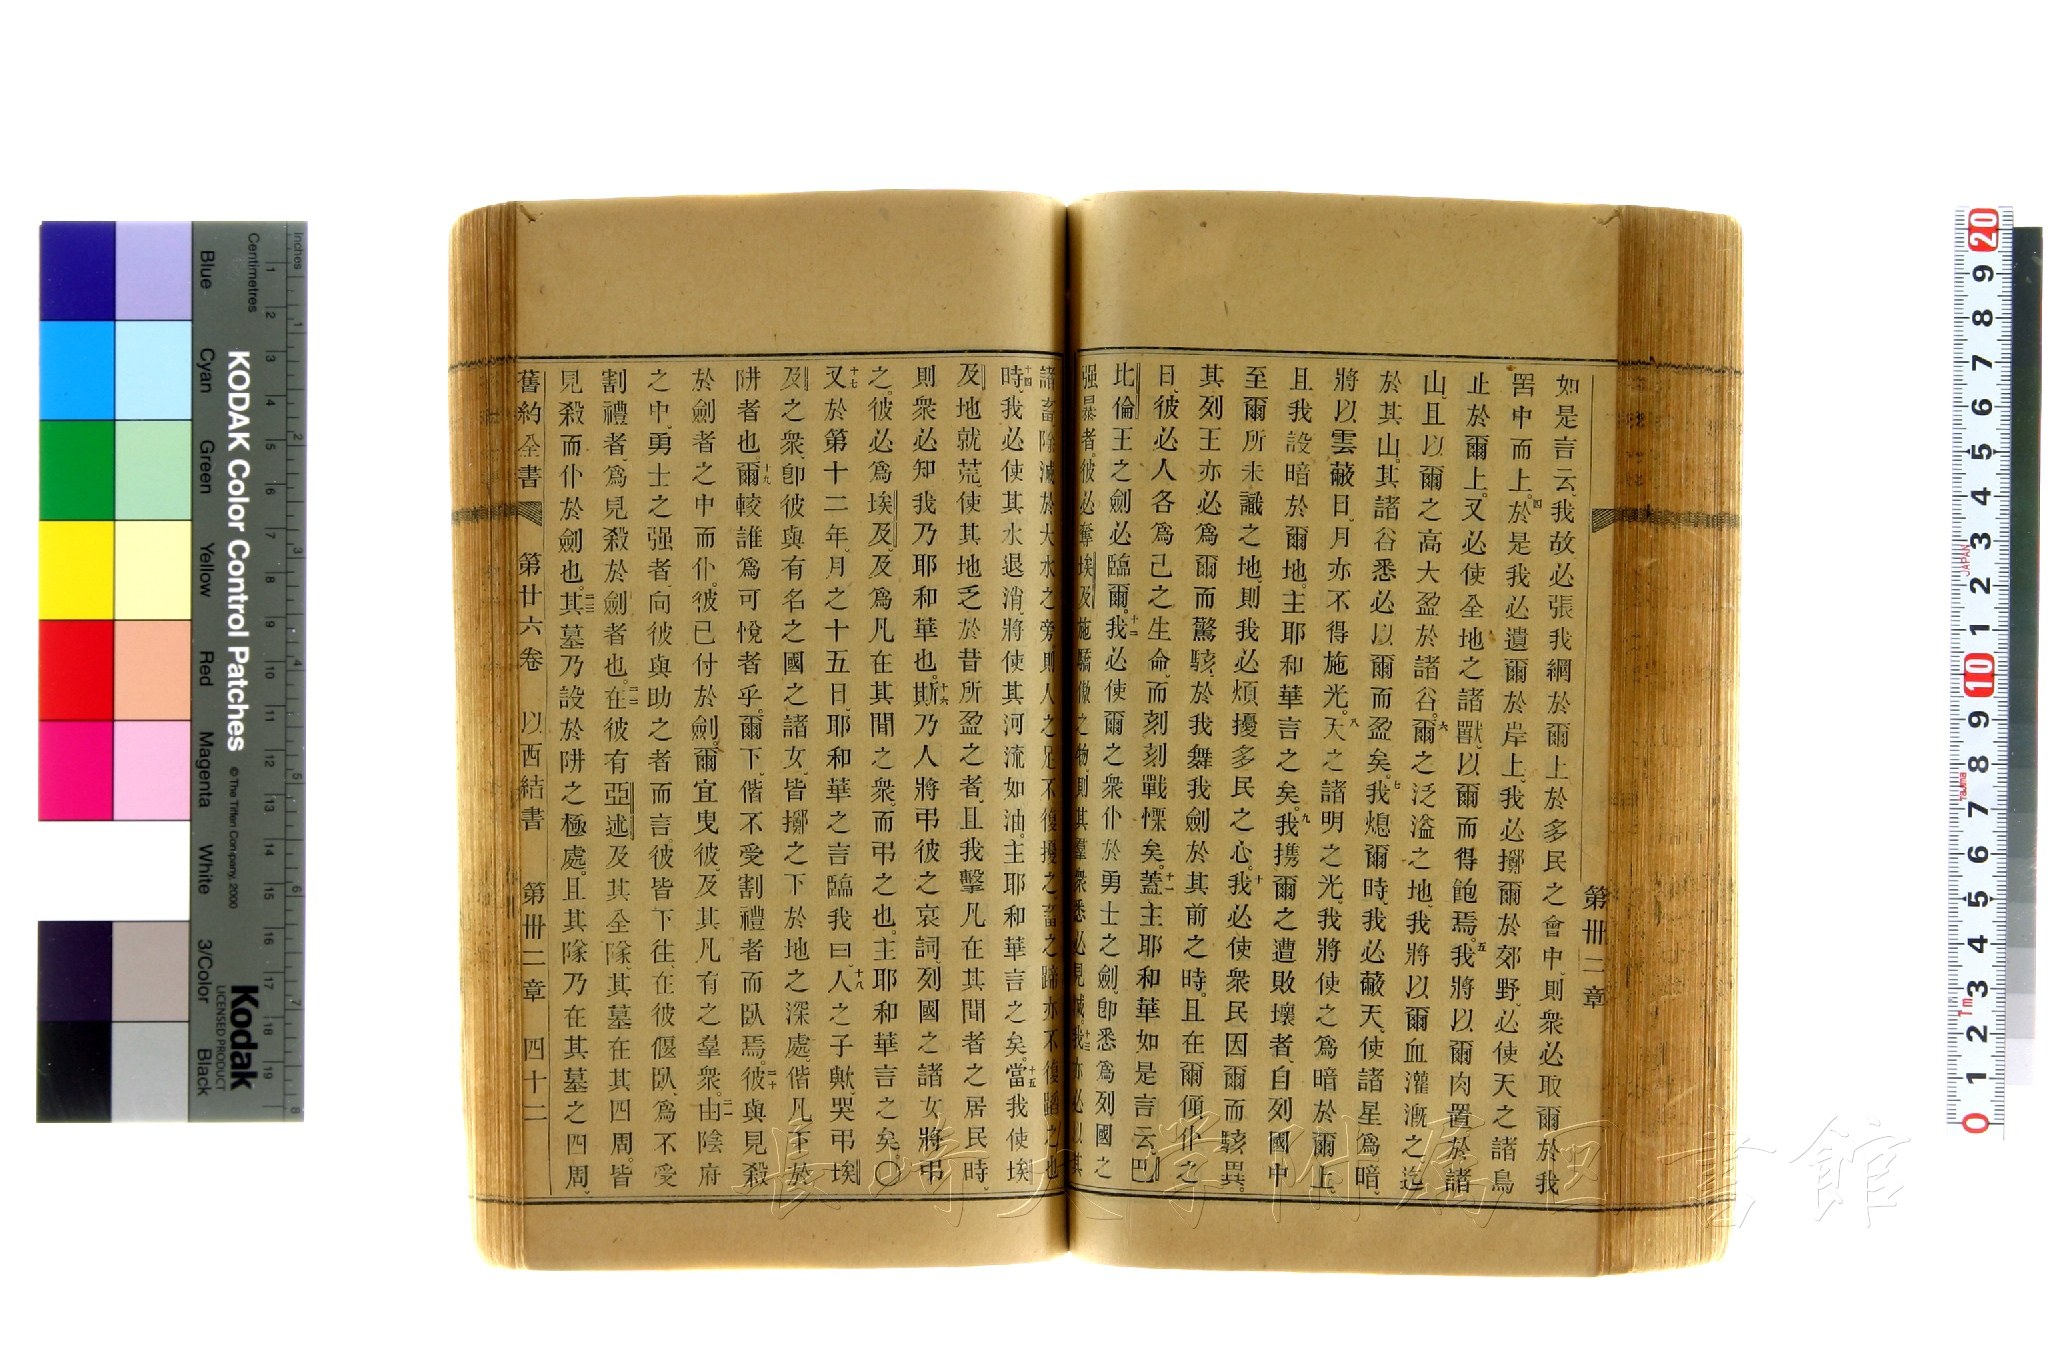 第卅二章
如是言云、我故必張我網於爾上於多民之會中、則衆必取爾於我
罟中而上。四於是我必遺爾於岸上、我必擲爾於郊野、必使天之諸鳥
止於爾上。又必使全地之諸獸、以爾而得飽焉。五我將以爾肉置於諸
山、且以爾之高大盈於諸谷。六爾之泛溢之地、我將以爾血灌漑之迄
於其山。其諸谷悉必以爾而盈矣。七我熄爾時、我必蔽天、使諸星爲暗、
將以雲蔽日、月亦不得施光。八天之諸明之光、我將使之爲暗於爾上、
且我設暗於爾地。主耶和華言之矣。九我携爾之遭敗壞者、自列國中
至爾所未識之地、則我必煩擾多民之心。十我必使衆民因爾而駭異。
其列王亦必爲爾而驚駭、於我舞我劍於其前之時。且在爾傾仆之
日、彼必人各爲己之生命、而刻刻戰慄矣。十一蓋主耶和華如是言云、巴
比倫王之劍必臨爾。十二我必使爾之衆仆於勇士之劍、卽悉爲列國之
强暴者。彼必奪埃及施驕傲之物、則其羣衆悉必見滅。十三我亦必以其
諸畜除滅於大水之旁、則人之足不復擾之、畜之蹄亦不復蹈之也
十四時、我必使其水退消、將使其河流如油。主耶和華言之矣。十五當我使埃
及地就荒、使其地乏於昔所盈之者、且我擊凡在其間者之居民時、
則衆必知我乃耶和華也。十六斯乃人將弔彼之哀詞、列國之諸女將弔
之。彼必爲埃及、及爲凡在其間之衆、而弔之也。主耶和華言之矣。〇
十七又於第十二年、月之十五日、耶和華之言臨我曰、十八人之子歟、哭弔埃
及之衆、卽彼與有名之國之諸女、皆擲之下於地之深處、偕凡下於
阱者也。十九爾較誰爲可悅者乎。爾下、偕不受割禮者而臥焉。二十彼與見殺
於劍者之中而仆。彼已付於劍。爾宜曳彼、及其凡有之羣衆。二一由陰府
之中、勇士之强者、向彼與助之者而言、彼皆下往、在彼偃臥、爲不受
割禮者、爲見殺於劍者也。二二在彼有亞述及其全隊、其墓在其四周。皆
見殺而仆於劍也。二三其墓乃設於阱之極處。且其隊乃在其墓之四周、
舊約全書 第廿六卷 以西結書 第卅二章 四十二
長崎大学附属図書館
KODAK Color Control Patches
© The Tiffen Company, 2000
Kodak
LICENSED PRODUCT
Inches
Centimetres
Blue
Cyan
Green
Yellow
Red
Magenta
White
3/Color
Black
JAPAN
Tajima
7m